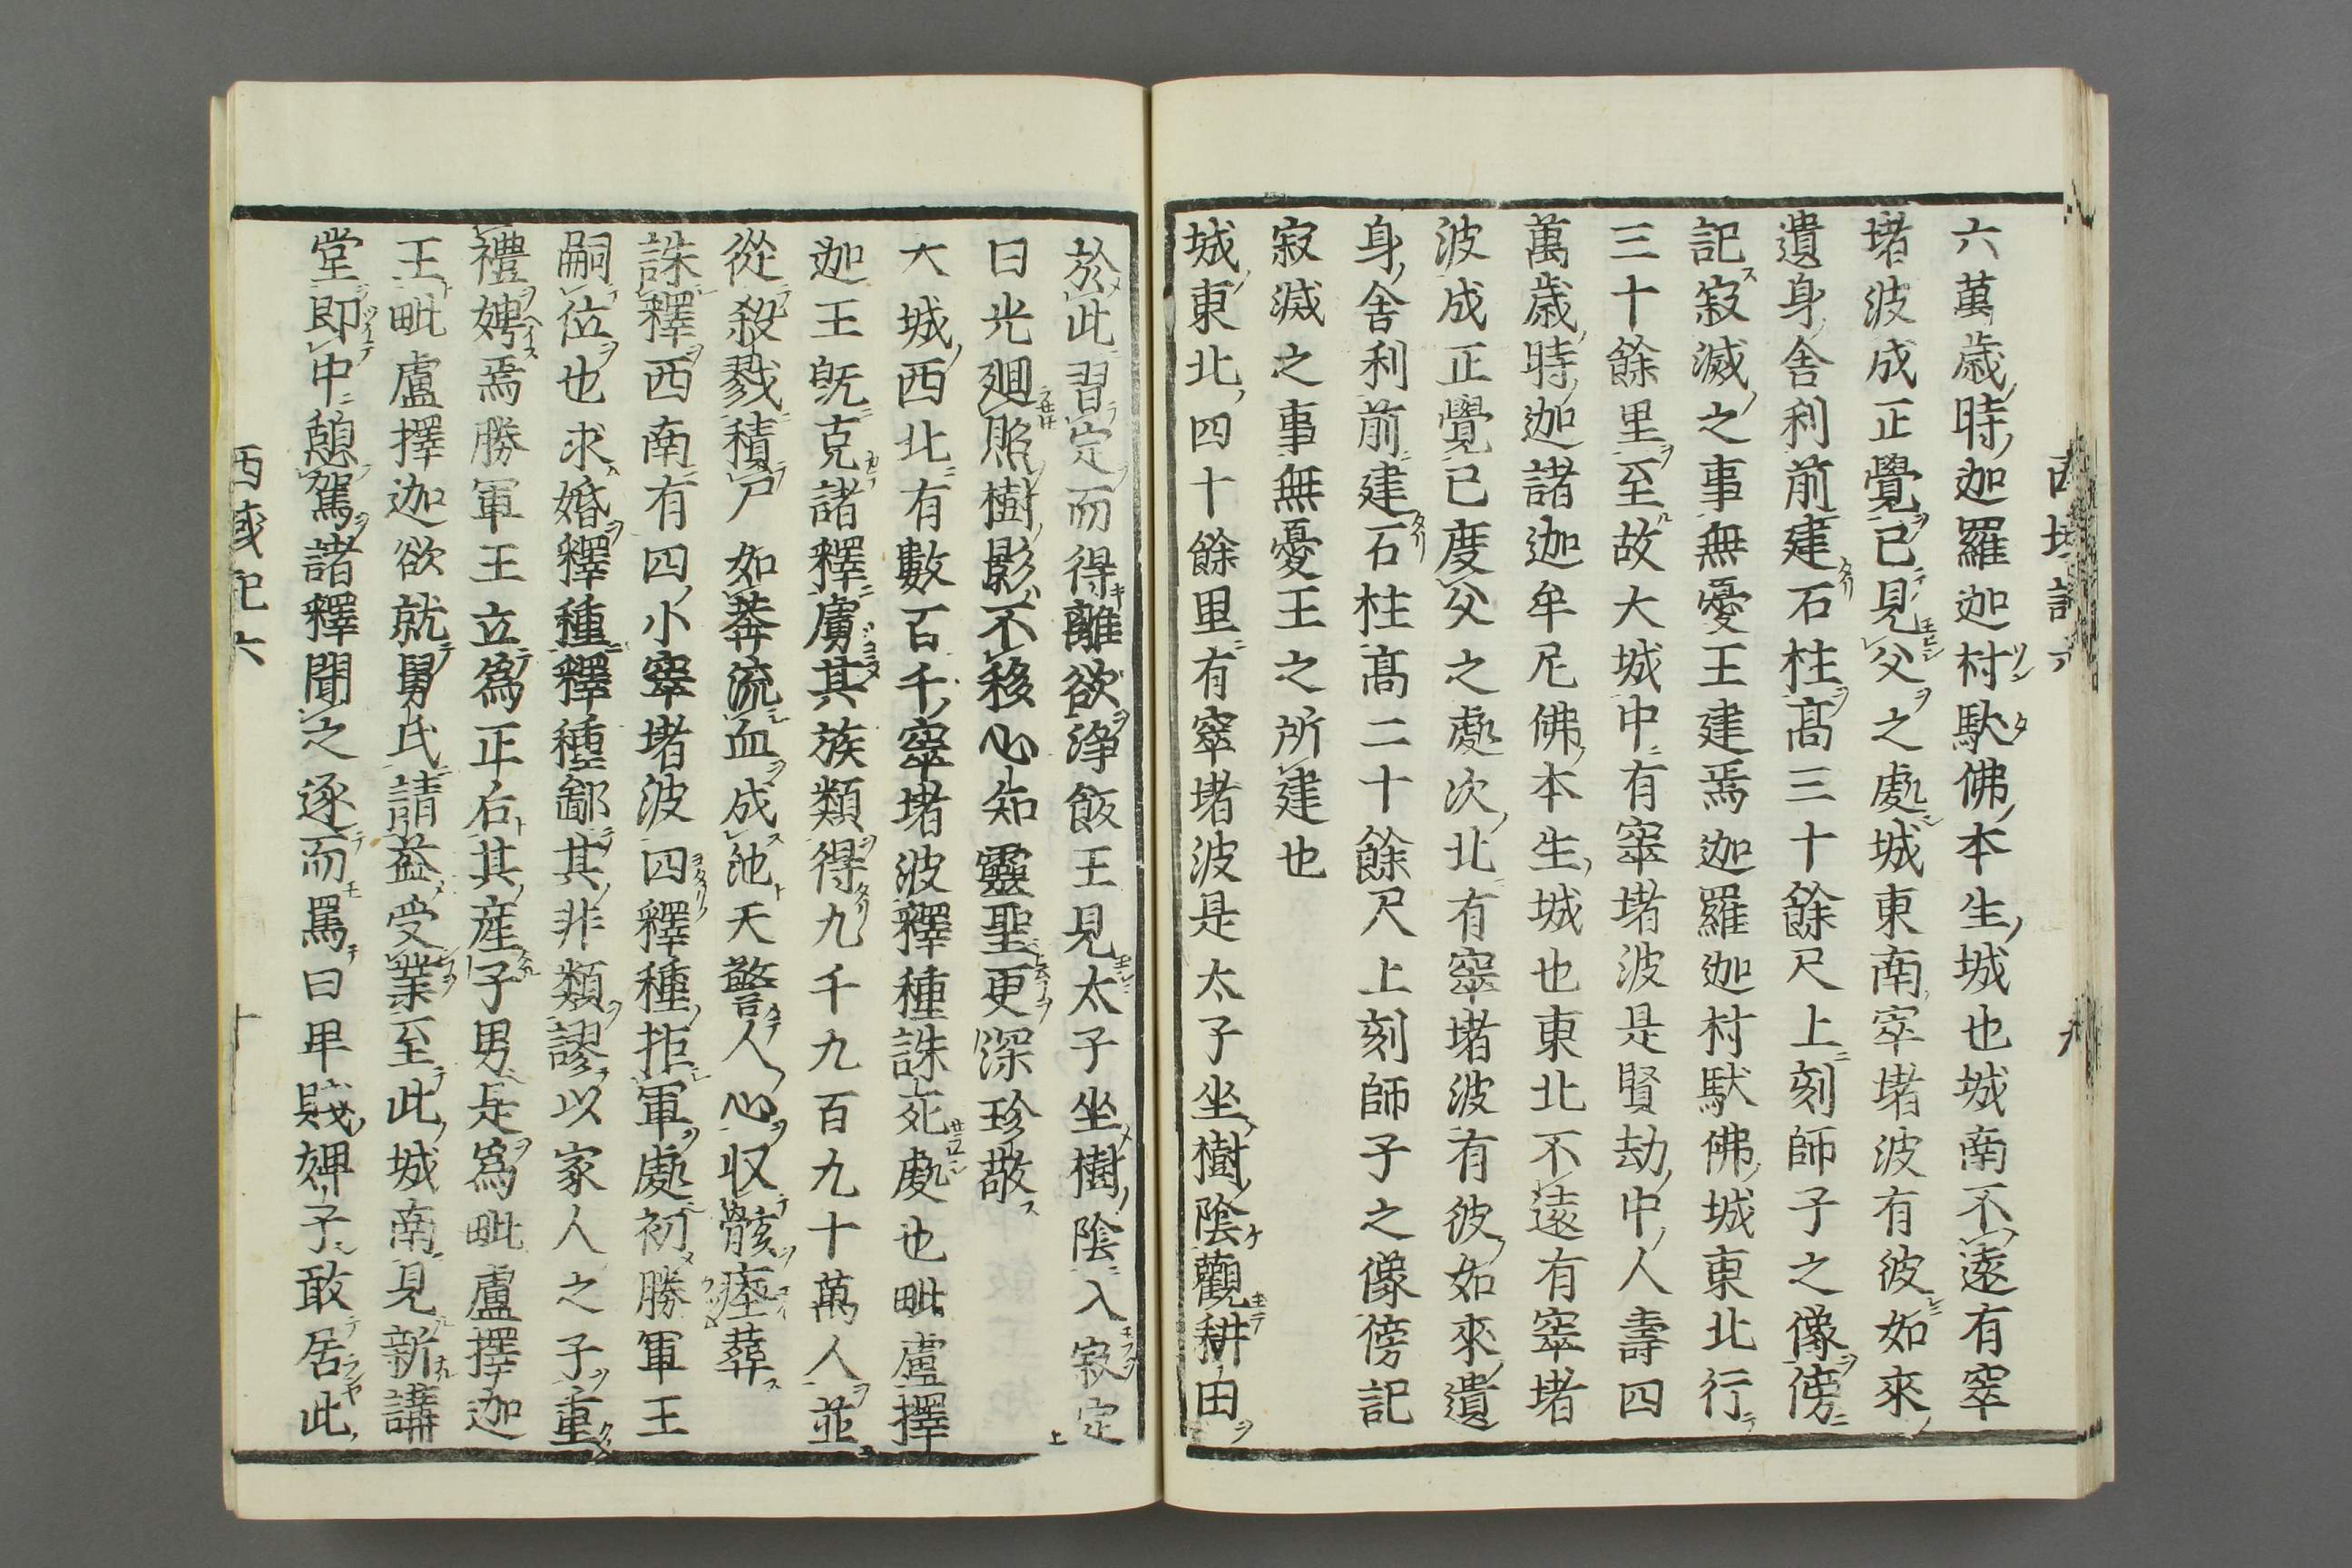 六萬歲時迦羅迦村馱佛本生城也城南不遠有窣
堵波成正覺已見父之處城東南窣堵波有彼如來
遺身舍利前建石柱髙三十餘尺上刻師子之像傍
記寂滅之事無憂王建焉迦羅迦村馱佛城東北行
三十餘里至故大城中有窣堵波是賢劫中人壽四
萬歲時迦諾迦牟尼佛本生城也東北不遠有窣堵
波成正覺已度父之處次北有窣堵波有彼如來遺
身舍利前建石柱髙二十餘尺上刻師子之像傍記
寂滅之事無憂王之所建也
城東北四十餘里有窣堵波是太子坐樹陰觀耕田
於此習定而得離欲淨飯王見太子坐樹陰入寂定
日光迴照樹影不移心知靈聖更深珍敬
大城西北有數百千窣堵波釋種誅死處也毗盧擇
迦王旣克諸釋虜其族類得九千九百九十萬人並
從殺戮積尸如莽流血成池天警人心収骸瘞葬
誅釋西南有四小窣堵波四釋種拒軍處初勝軍王
嗣位也求婚釋種釋種鄙其非類謬以家人之子重
禮娉焉勝軍王立爲正后其産子男是爲毗盧擇迦
王毗盧擇迦欲就舅氏請益受業至此城南見新講
堂即中憩駕諸釋聞之逐而罵曰卑賤婢子敢居此
西域記六
十